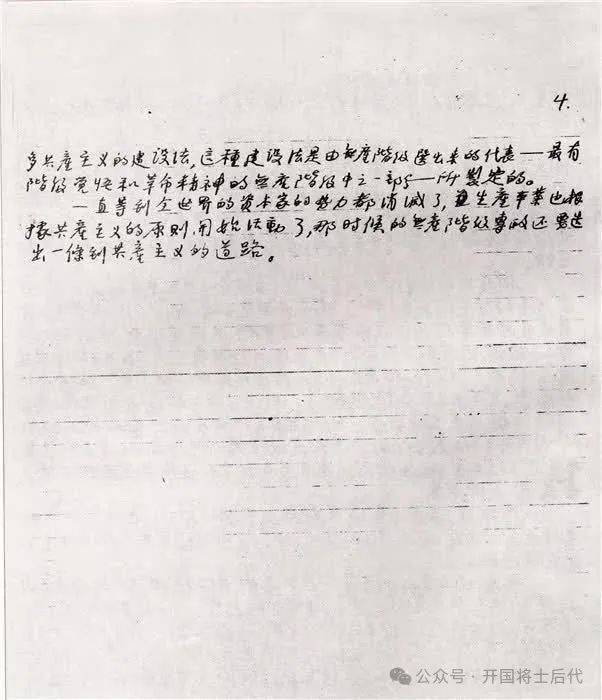 4.
多共產主义的建设法,这種建设法是由無產階级選出来的代表——最有
階级觉悟和革命精神的無產階级中之一部——所製定的。
一直等到全世界的资本家的势力都消滅了,生產事業也根
據共產主义的原则開始活動了,那时候的無產階级專政还要造
出一條到共產主义的道路。
公众号·开国将士后代